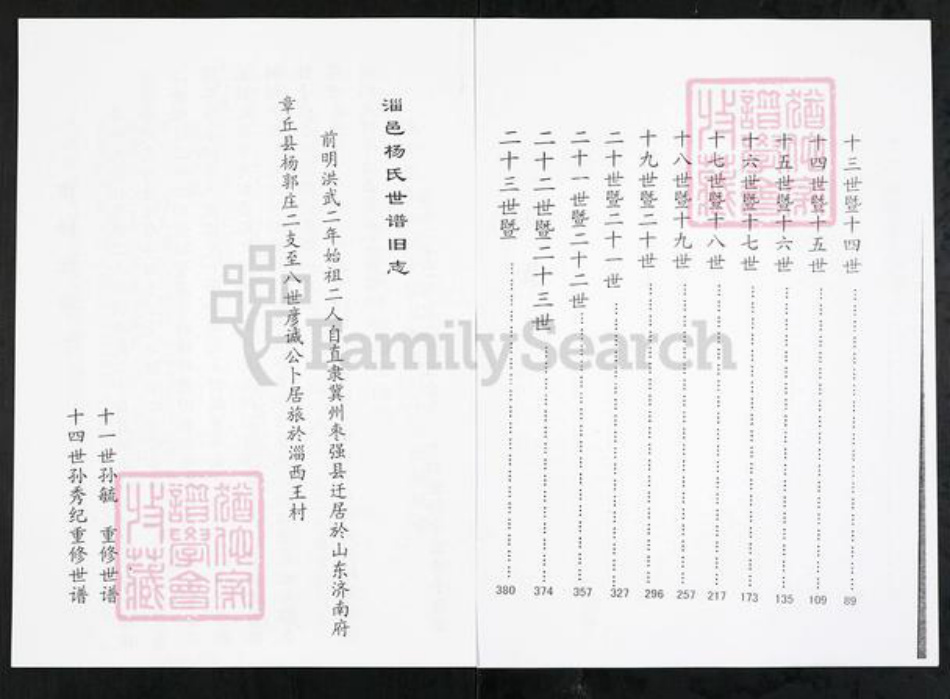 十三世暨十四世 89
十四世暨十五世 109
十五世暨十六世 135
十六世暨十七世 173
十七世暨十八世 217
十八世暨十九世 257
十九世暨二十世 296
二十世暨二十一世 327
二十一世暨二十二世 357
二十二世暨二十三世 374
二十三世暨 380
淄邑杨氏世谱旧志
前明洪武二年始祖二人自直隶冀州枣强县迁居於山东济南府
章丘县杨郭庄二支至八世彦诚公卜居旅於淄西王村
十一世孙毓 重修世谱
十四世孙秀纪重修世谱
FamilySearch